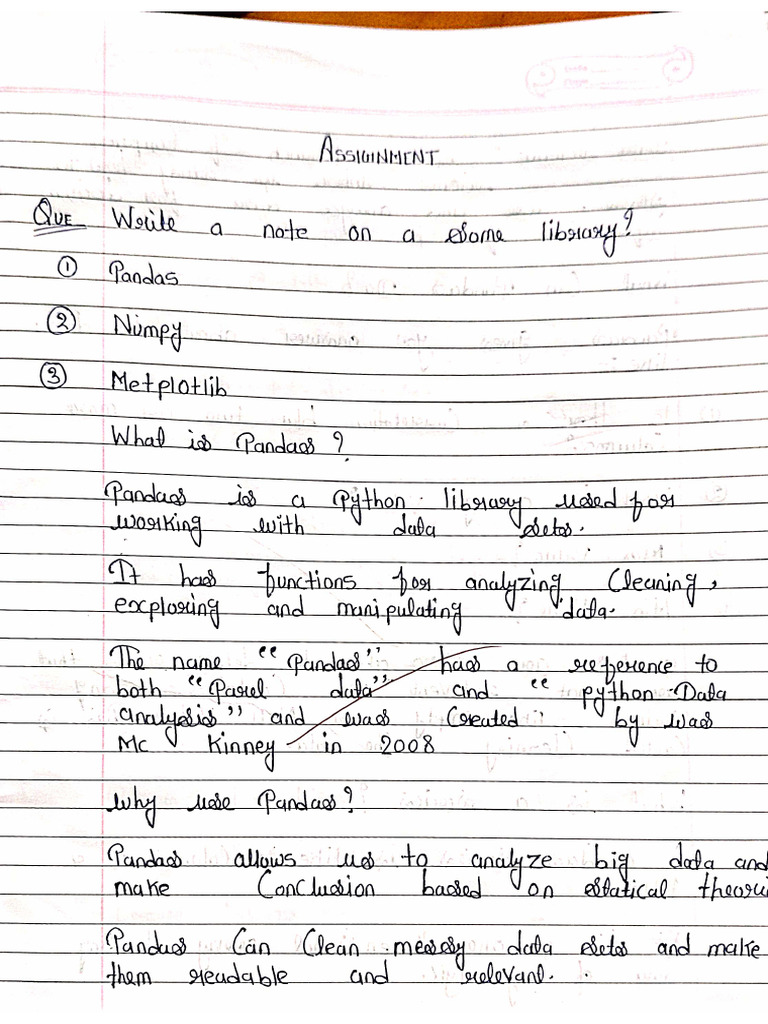 ASSIGNMENT
Que Write a note on a some library?
① Pandas
② Numpy
③ Metplotlib
What is Pandas?
Pandas is a Python library used for
working with data sets.
It has functions for analyzing Cleaning,
exploring and manipulating data.
The name "Pandas" has a reference to
both "Parel data" and "python Data
analysis" and was Created by was
Mc Kinney in 2008
why use Pandas?
Pandas allows us to analyze big data and
make Conclusion based on statical
Pandas Can Clean messy data sets and make
them readable and relevant.